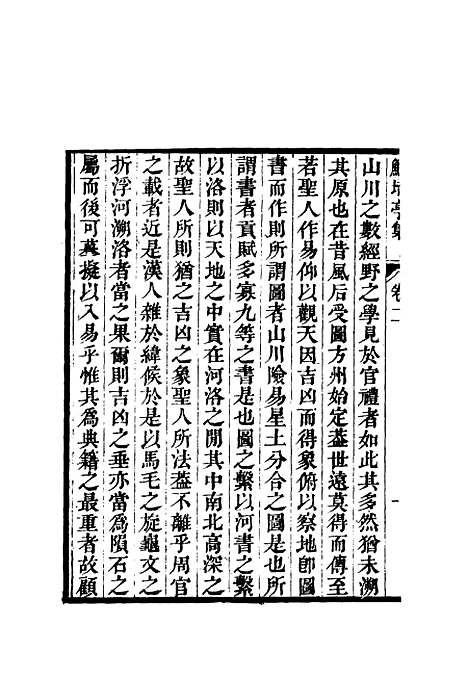 鮚埼亭集 卷二 一
山川之數經野之學見於官禮者如此其多然猶未溯
其原也在昔風后受圖方州始定蓋世遠莫得而傳至
若聖人作易仰以觀天因吉凶而得象俯以察地卽圖
書而作則所謂圖者山川險易星土分合之圖是也所
謂書者貢賦多寡九等之書是也圖之繫以河書之繫
以洛則以天地之中實在河洛之閒其中南北高深之
故聖人所則猶之吉凶之象聖人所法蓋不離乎周官
之載者近是漢人雜於緯候於是以馬毛之旋龜文之
折浮河溯洛者當之果爾則吉凶之垂亦當爲隕石之
屬而後可葚擬以入易乎惟其爲典籍之最重者故顧